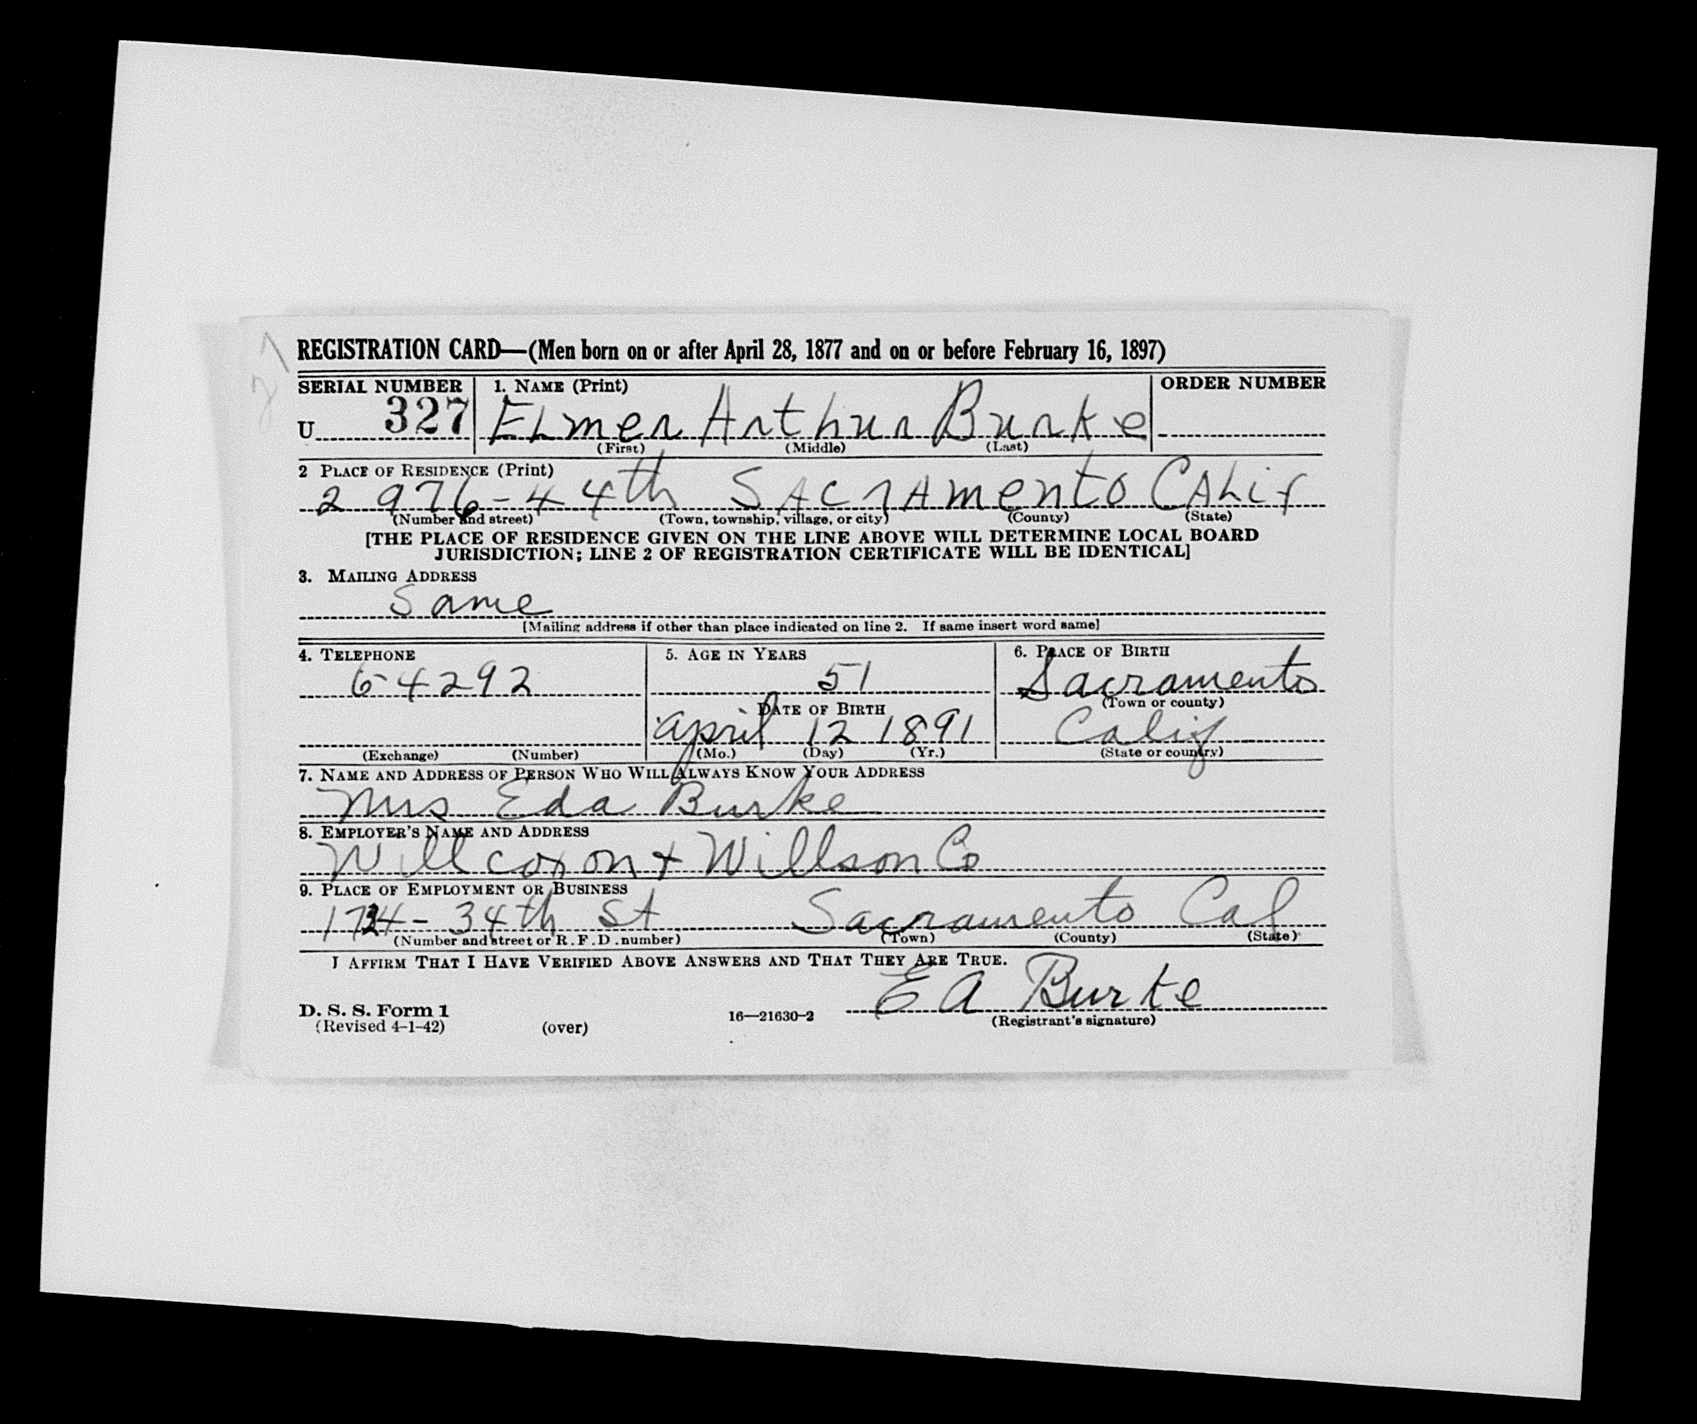 27
REGISTRATION CARD—(Men born on or after April 28, 1877 and on or before February 16, 1897)
SERIAL NUMBER 1. NAME (Print) ORDER NUMBER
U 327 ELmer Arthur Burke
(First) (Middle) (Last)
2 PLACE OF RESIDENCE (Print)
2976-44th SAcrAmento CALif
(Number and street) (Town, township, village, or city) (County) (State)
[THE PLACE OF RESIDENCE GIVEN ON THE LINE ABOVE WILL DETERMINE LOCAL BOARD
JURISDICTION; LINE 2 OF REGISTRATION CERTIFICATE WILL BE IDENTICAL]
3. MAILING ADDRESS
Same
[Mailing address if other than place indicated on line 2. If same insert word same]
4. TELEPHONE 5. AGE IN YEARS 6. PLACE OF BIRTH
6-4292 51 Sacramento
DATE OF BIRTH (Town or county)
April 12 1891 Calif
(Exchange) (Number) (Mo.) (Day) (Yr.) (State or country)
7. NAME AND ADDRESS OF PERSON WHO WILL ALWAYS KNOW YOUR ADDRESS
Mrs Eda Burke
8. EMPLOYER'S NAME AND ADDRESS
Willcoxon + Willson Co
9. PLACE OF EMPLOYMENT OR BUSINESS
34th St Sacramento Cal
(Number and street or R. F. D. number) (Town) (County) (State)
I AFFIRM THAT I HAVE VERIFIED ABOVE ANSWERS AND THAT THEY ARE TRUE.
E A Burke
D. S. S. Form 1
(Revised 4-1-42) (over) 16—21630-2 (Registrant's signature)